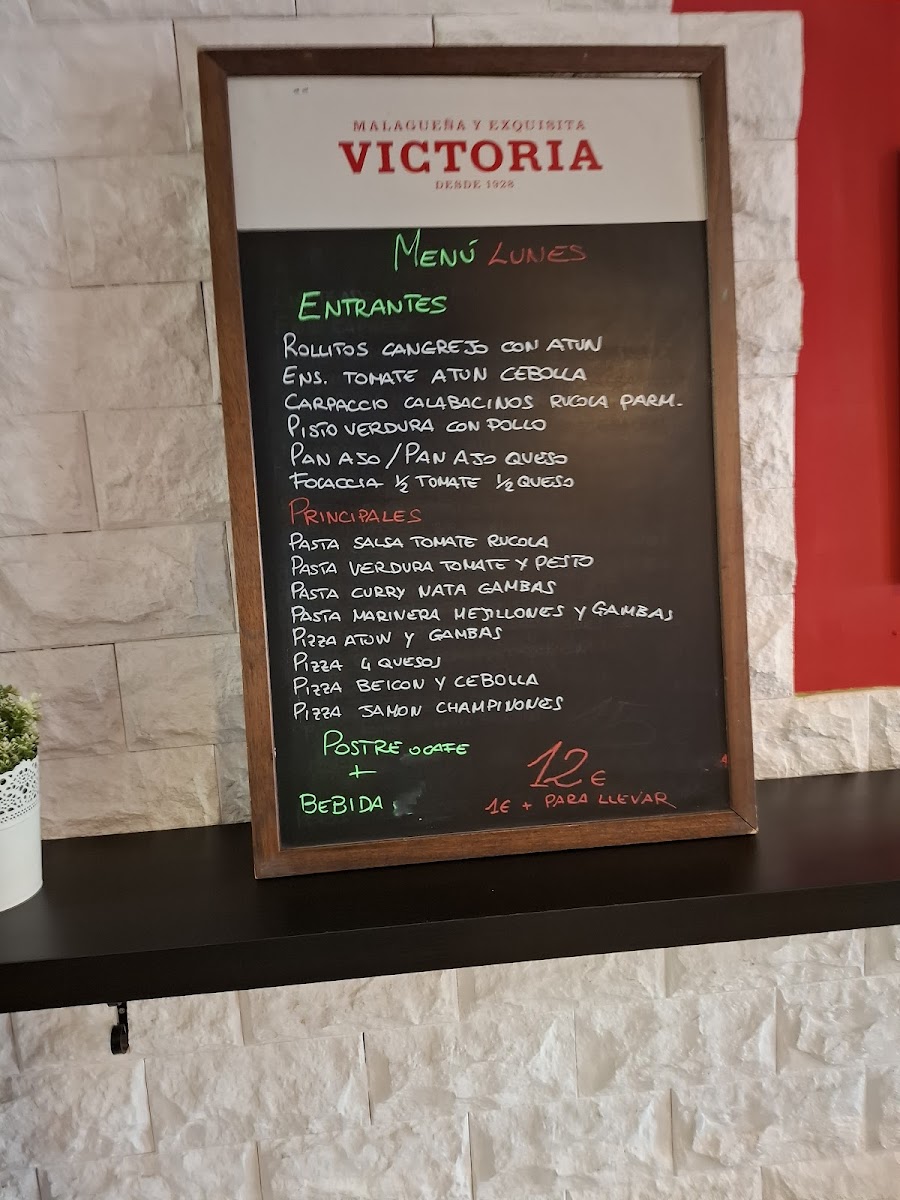 MALAGUEÑA Y EXQUISITA
VICTORIA
DESDE 1928
MENÚ LUNES
ENTRANTES
ROLLITOS CANGREJO CON ATUN
ENS. TOMATE ATUN CEBOLLA
CARPACCIO CALABACINOS RUCOLA PARM.
PISTO VERDURA CON POLLO
PAN AJO / PAN AJO QUESO
FOCACCIA 1/2 TOMATE 1/2 QUESO
PRINCIPALES
PASTA SALSA TOMATE RUCOLA
PASTA VERDURA TOMATE Y PESTO
PASTA CURRY NATA GAMBAS
PASTA MARINERA MEJILLONES Y GAMBAS
PIZZA ATUN Y GAMBAS
PIZZA 4 QUESOS
PIZZA BEICON Y CEBOLLA
PIZZA JAMON CHAMPINONES
POSTRE O CAFE
+
BEBIDA
12€
1€ + PARA LLEVAR